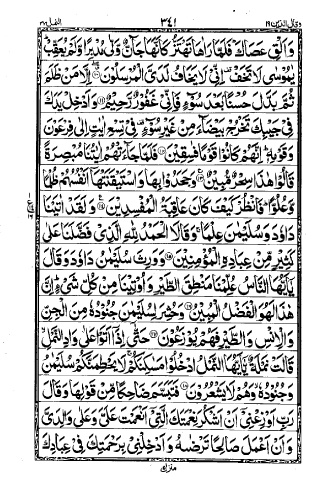 وقال الذین ۱۹ ۳۴۱ النمل ۲۷
وَاَلْقِ عَصَاكَ ؕ فَلَمَّا رَاٰهَا تَهْتَزُّ كَاَنَّهَا جَآنٌّ وَّلّٰى مُدْبِرًا وَّلَمْ يُعَقِّبْ ؕ
يٰمُوْسٰى لَا تَخَفْ ۟ اِنِّيْ لَا يَخَافُ لَدَيَّ الْمُرْسَلُوْنَ ۝۱۰ اِلَّا مَنْ ظَلَمَ
ثُمَّ بَدَّلَ حُسْنًۢا بَعْدَ سُوْٓءٍ فَاِنِّيْ غَفُوْرٌ رَّحِيْمٌ ۝۱۱ وَاَدْخِلْ يَدَكَ
فِيْ جَيْبِكَ تَخْرُجْ بَيْضَآءَ مِنْ غَيْرِ سُوْٓءٍ ۟ فِيْ تِسْعِ اٰيٰتٍ اِلٰى فِرْعَوْنَ
وَقَوْمِهٖ ؕ اِنَّهُمْ كَانُوْا قَوْمًا فٰسِقِيْنَ ۝۱۲ فَلَمَّا جَآءَتْهُمْ اٰيٰتُنَا مُبْصِرَةً
قَالُوْا هٰذَا سِحْرٌ مُّبِيْنٌ ۝۱۳ وَجَحَدُوْا بِهَا وَاسْتَيْقَنَتْهَاۤ اَنْفُسُهُمْ ظُلْمًا
وَّعُلُوًّا ؕ فَانْظُرْ كَيْفَ كَانَ عَاقِبَةُ الْمُفْسِدِيْنَ ۝۱۴ وَلَقَدْ اٰتَيْنَا
دَاوٗدَ وَسُلَيْمٰنَ عِلْمًا ۚ وَقَالَا الْحَمْدُ لِلّٰهِ الَّذِيْ فَضَّلَنَا عَلٰى
كَثِيْرٍ مِّنْ عِبَادِهِ الْمُؤْمِنِيْنَ ۝۱۵ وَوَرِثَ سُلَيْمٰنُ دَاوٗدَ وَقَالَ
يٰۤاَيُّهَا النَّاسُ عُلِّمْنَا مَنْطِقَ الطَّيْرِ وَاُوْتِيْنَا مِنْ كُلِّ شَيْءٍ ؕ اِنَّ
هٰذَا لَهُوَ الْفَضْلُ الْمُبِيْنُ ۝۱۶ وَحُشِرَ لِسُلَيْمٰنَ جُنُوْدُهٗ مِنَ الْجِنِّ
وَالْاِنْسِ وَالطَّيْرِ فَهُمْ يُوْزَعُوْنَ ۝۱۷ حَتّٰۤى اِذَاۤ اَتَوْا عَلٰى وَادِ النَّمْلِ ۙ
قَالَتْ نَمْلَةٌ يّٰۤاَيُّهَا النَّمْلُ ادْخُلُوْا مَسٰكِنَكُمْ ۚ لَا يَحْطِمَنَّكُمْ سُلَيْمٰنُ
وَجُنُوْدُهٗ ۙ وَهُمْ لَا يَشْعُرُوْنَ ۝۱۸ فَتَبَسَّمَ ضَاحِكًا مِّنْ قَوْلِهَا وَقَالَ
رَبِّ اَوْزِعْنِيْۤ اَنْ اَشْكُرَ نِعْمَتَكَ الَّتِيْۤ اَنْعَمْتَ عَلَيَّ وَعَلٰى وَالِدَيَّ
وَاَنْ اَعْمَلَ صَالِحًا تَرْضٰىهُ وَاَدْخِلْنِيْ بِرَحْمَتِكَ فِيْ عِبَادِكَ
منزل ۵